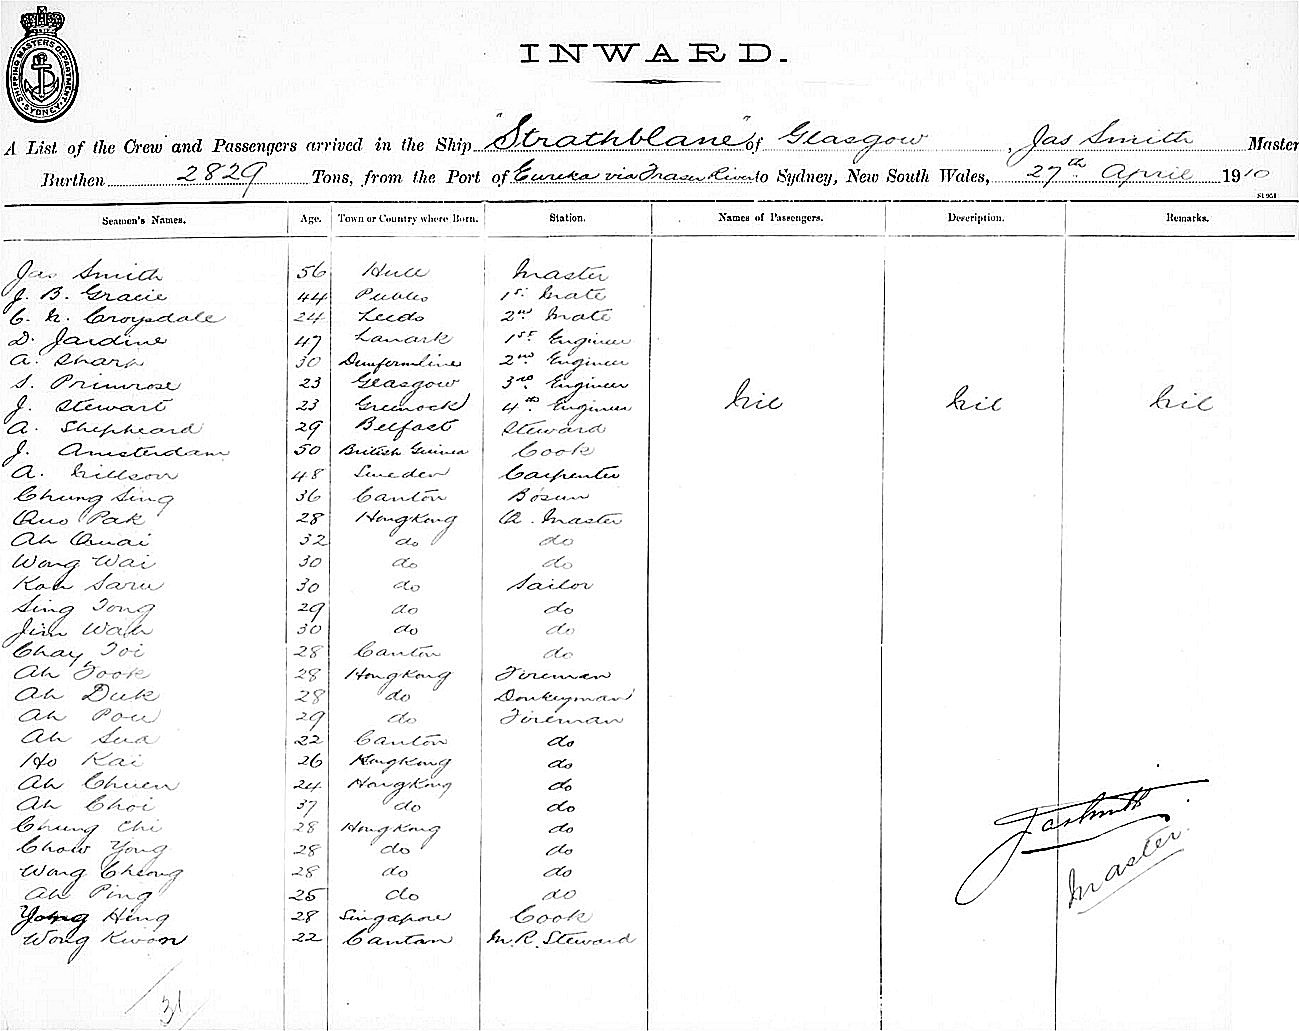 SHIPPING MASTERS DEPARTMENT
SYDNEY
INWARD.
A List of the Crew and Passengers arrived in the Ship "Strathblane" of Glasgow, Jas Smith Master
Burthen 2829 Tons, from the Port of Eureka via Fraser River to Sydney, New South Wales, 27th April 1910
Seamen's Names. Age. Town or Country where Born. Station. Names of Passengers. Description. Remarks.
Jas Smith 56 Hull Master
J. B. Gracie 44 Peebles 1st Mate
C. N. Croysdale 24 Leeds 2nd Mate
D. Jardine 47 Lanark 1st Engineer
A. Sharp 30 Dunfermline 2nd Engineer
S. Primrose 23 Glasgow 3rd Engineer
J. Stewart 23 Greenock 4th Engineer Nil Nil Nil
A. Shepheard 29 Belfast Steward
J. Amsterdam 50 British Guinea Cook
A. Nillson 48 Sweden Carpenter
Chung Sing 36 Canton Bosun
Quo Pak 28 Hong Kong Q. Master
Ah Quai 32 do do
Wong Wai 30 do do
Kan Saru 30 do Sailor
Sing Tong 29 do do
Jim Wah 30 do do
Chay Toi 28 Canton do
Ah Took 28 Hong Kong Fireman
Ah Duk 28 do Donkeyman
Ah Pou 29 do Fireman
Ah Sua 22 Canton do
Ho Kai 26 Hong Kong do
Ah Chuen 24 Hong Kong do
Ah Choi 37 do do
Chung Chi 28 Hong Kong do
Chow Yong 28 do do
Wong Cheong 28 do do
Ah Ping 25 do do
Yong Hing 28 Singapore Cook
Wong Kwon 22 Canton M. R. Steward
Jas Smith
Master.
31